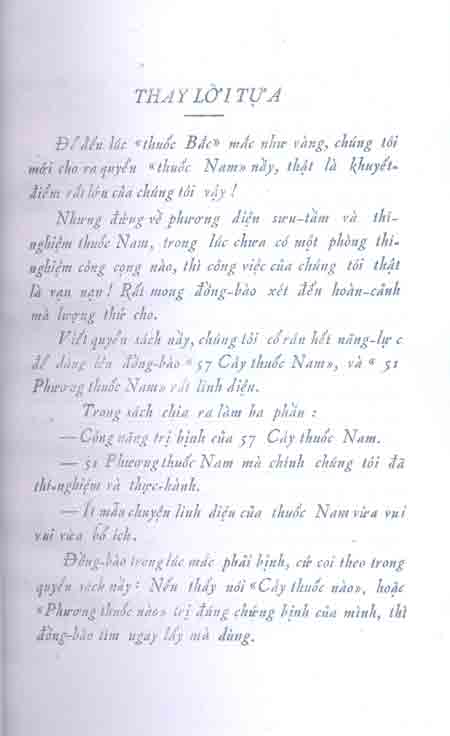 THAY LỜI TỰA
Để đến lúc «thuốc Bắc» mắc như vàng, chúng tôi
mới cho ra quyển «thuốc Nam» nầy, thật là khuyết-
điểm rất lớn của chúng tôi vậy !
Nhưng đứng về phương diện sưu-tầm và thí-
nghiệm thuốc Nam, trong lúc chưa có một phòng thí-
nghiệm công cọng nào, thì công việc của chúng tôi thật
là vạn nạn ! Rất mong đồng-bào xét đến hoàn-cảnh
mà lượng thứ cho.
Viết quyển sách nầy, chúng tôi cố rán hết năng-lực
để dâng lên đồng-bào «57 Cây thuốc Nam», và « 51
Phương thuốc Nam» rất linh diệu.
Trong sách chia ra làm ba phần :
— Công năng trị bịnh của 57 Cây thuốc Nam.
— 51 Phương thuốc Nam mà chính chúng tôi đã
thí-nghiệm và thực-hành.
— Ít mẫu chuyện linh diệu của thuốc Nam vừa vui
vui vừa bổ ích.
Đồng-bào trong lúc mắc phải bịnh, cứ coi theo trong
quyển sách nầy : Nếu thấy nói «Cây thuốc nào», hoặc
«Phương thuốc nào» trị đúng chứng bịnh của mình, thì
đồng-bào tìm ngay lấy mà dùng.